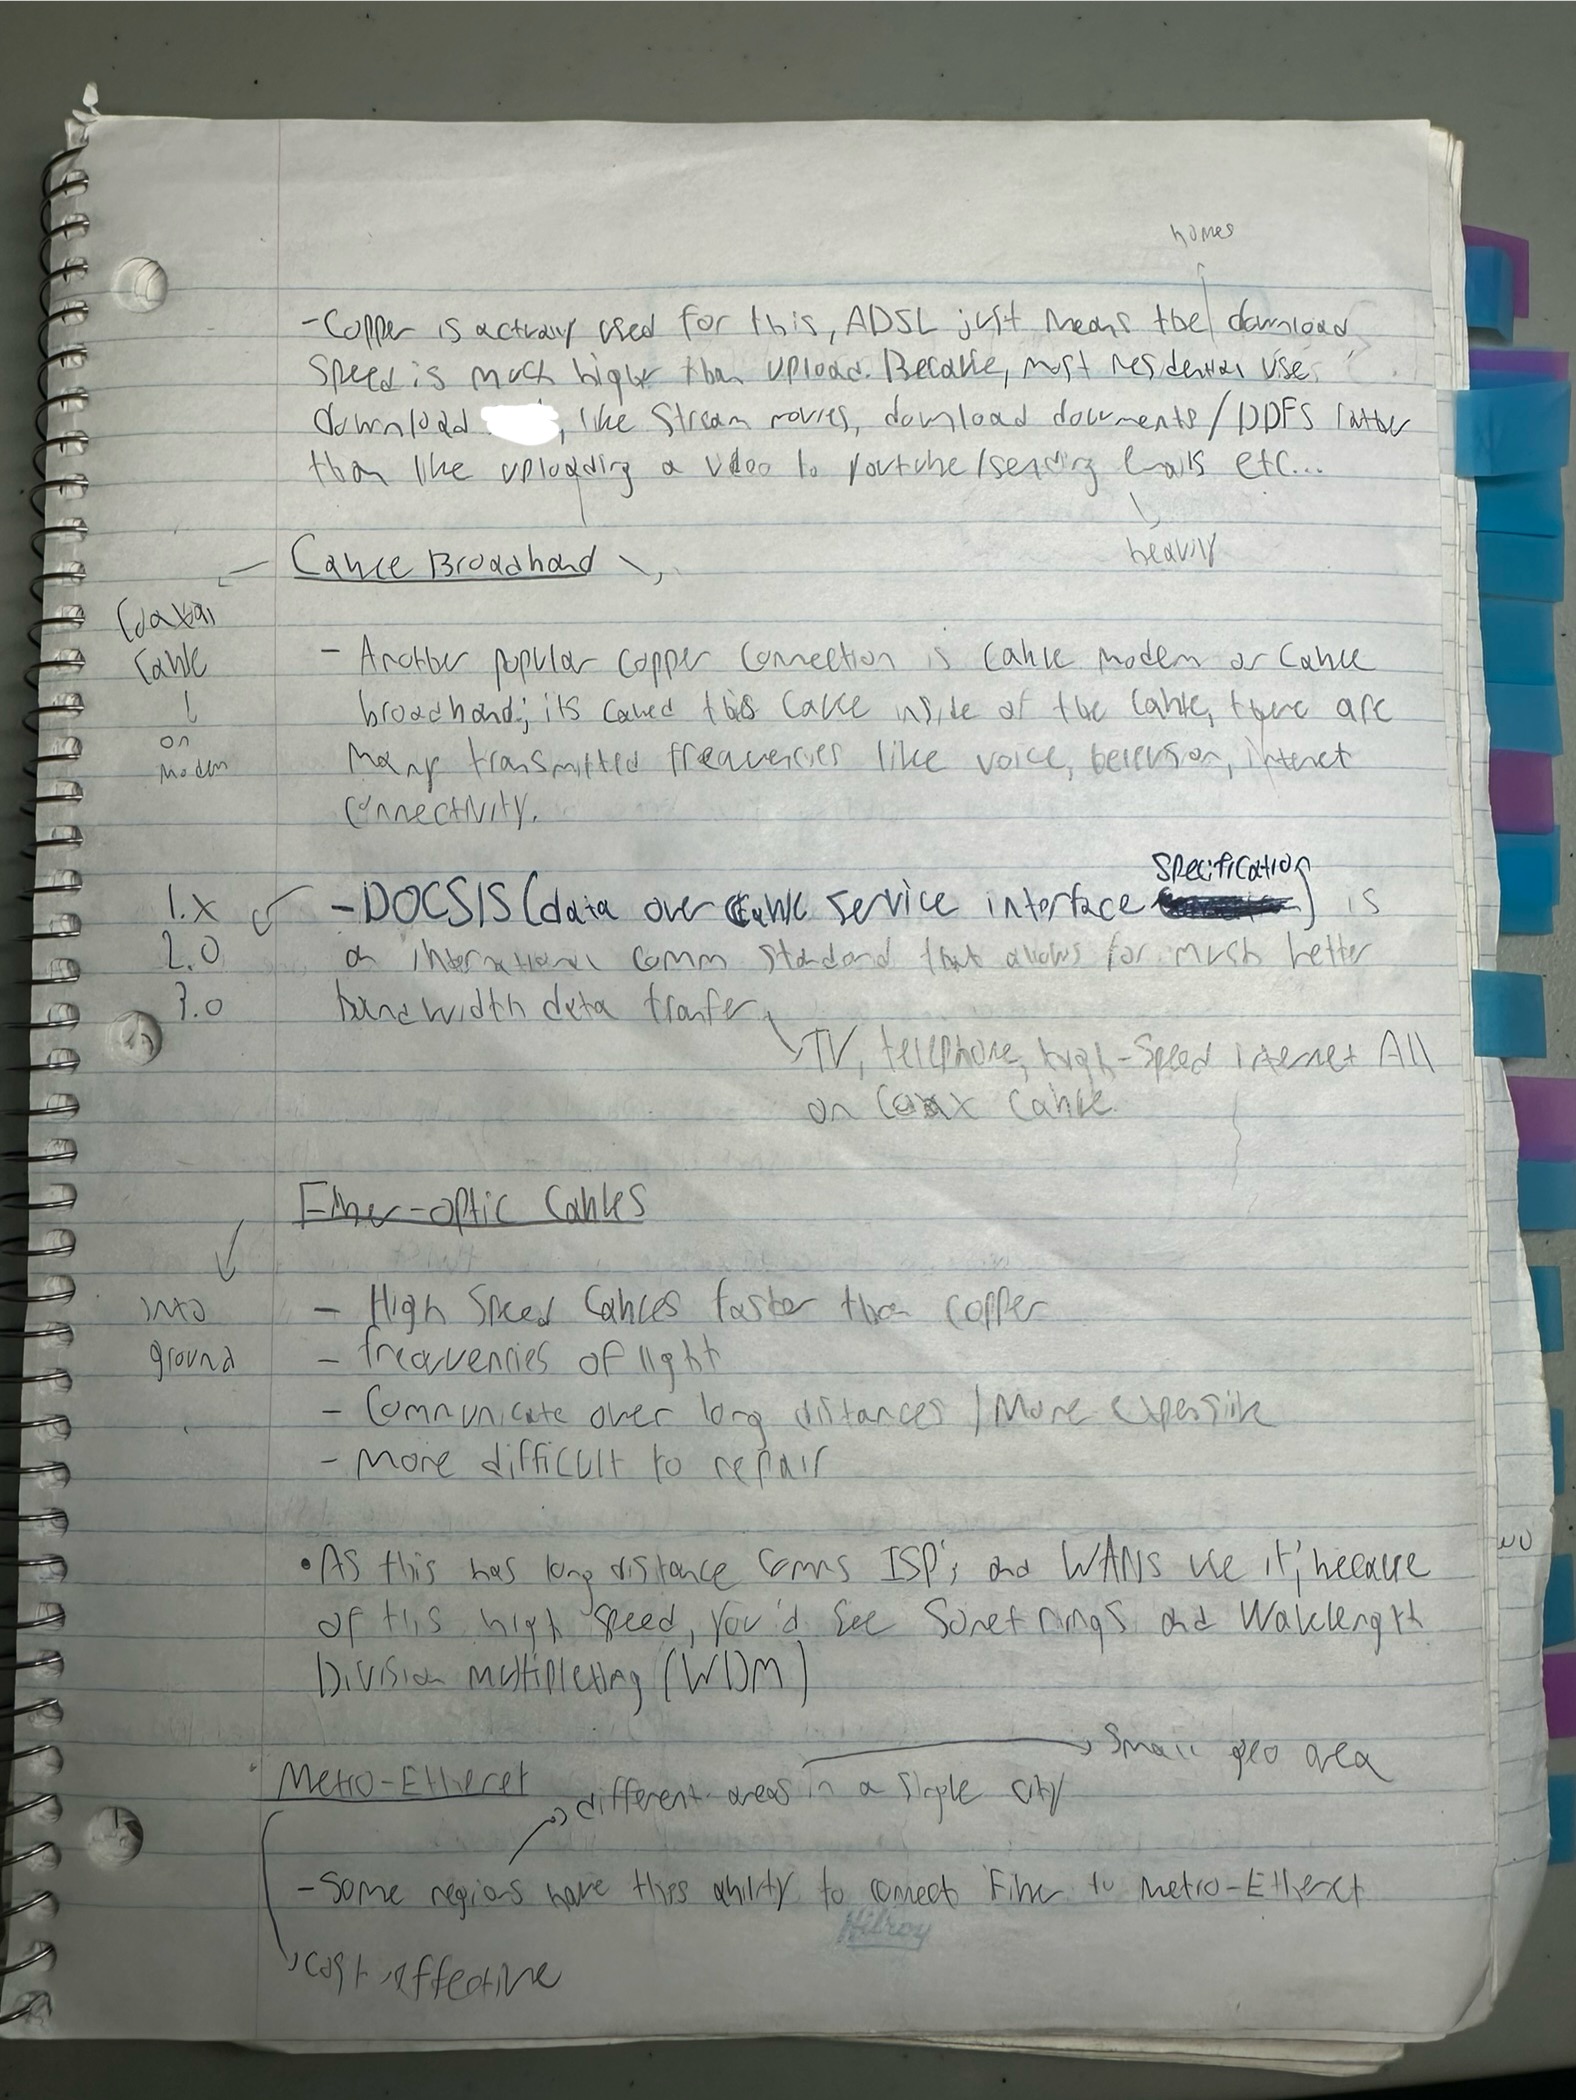 homes
- Copper is actually used for this, ADSL just means the download
speed is much higher than upload. Because, most residential use
download , like stream movies, download documents/PDFS rather
than like uploading a video to youtube/sending emails etc...
heavily
Cable Broadband
Coaxial
cable
on
modem
- Another popular copper connection is cable modem or cable
broadband; its called this cause inside of the cable, there are
many transmitted frequencies like voice, television, internet
connectivity.
specification
1.x
2.0
3.0
- DOCSIS (data over cable service interface ) is
an international comm standard that allows for much better
bandwidth data tranfer
TV, telephone, high-speed internet All
on coax cable.
Fiber-optic Cables
into
ground
- High speed cables faster than copper
- frequencies of light
- Communicate over long distances / More expensive
- More difficult to repair
• As this has long distance comms ISP's and WANs use it; because
of this high speed, you'd see Sonet rings and Wavelength
Division multiplexing (WDM)
small geo area
Metro-Ethernet
different areas in a single city
- Some regions have this ability to connect Fiber to Metro-Ethernet
Hilroy
cost effective